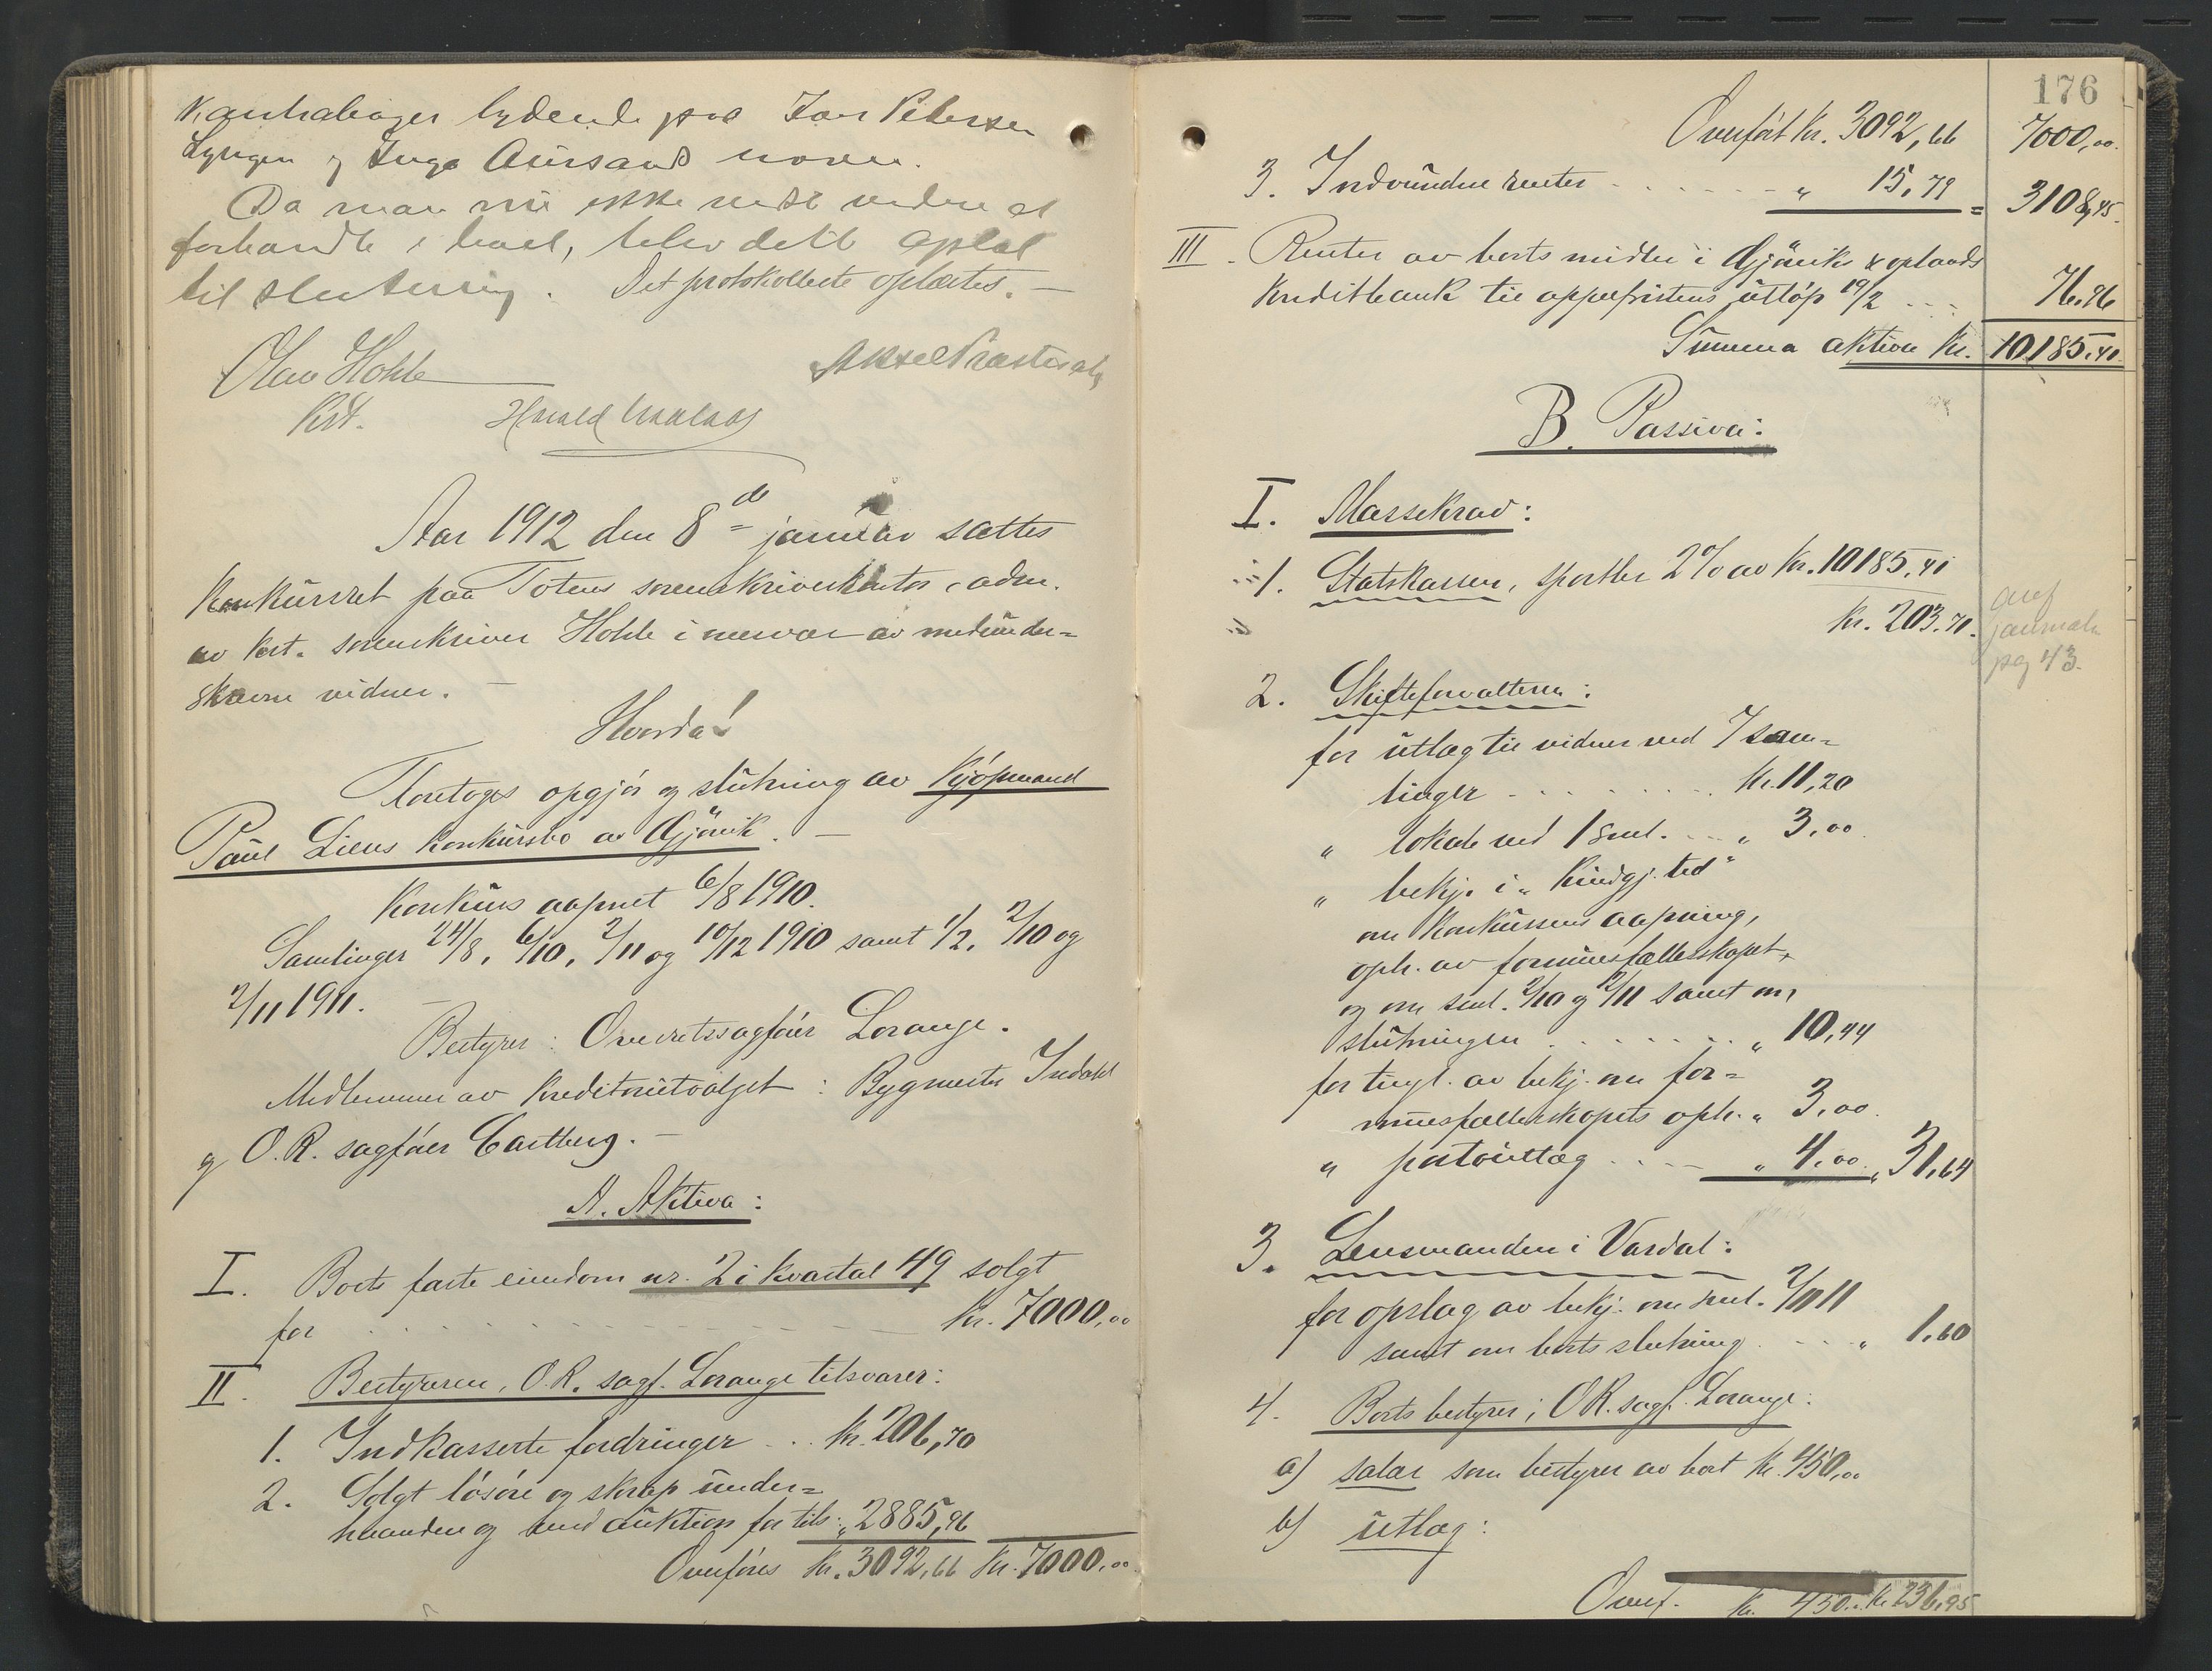 Kautabøger lydende paa Iver Petersen
Lyngen og Inga Aursand navn.
Da man nu ikke vidste videre at
forhandle i boet, blev dette optat
til slutning. Det protokollerte oplæstes. —
Olav Hohle
kst. Harald
Aar 1912 den 8de januar sattes
konkursret paa Totens sorenskriverkontor, adm.
av kst. sorenskriver Hohle i nærvær av medunder=
skrevne vidner. —
Hvorda!
Foretoges opgjør og slutning av kjøpmand
Paul Liens konkursbo av Gjøvik. —
Konkurs aapnet 6/8 1910.
Samlinger 24/8, 6/10, 2/11 og 10/12 1910 samt 1/2, 2/10 og
2/11 1911. —
Bestyrer: Overretssagfører Lorange.
Medlemmer av kreditorutvalget: Bygmester Indahl
og O.R. sagfører Castberg. —
A. Aktiva:
I. Boets faste eiendom nr. 2 i kvartal 49 solgt
for . . . . kr. 7000,00
II. Bestyreren, O.R. sagf. Lorange tilsvarer:
1. Indkasserte fordringer . . . kr. 206,70
2. Solgt løsøre og skrap under=
haanden og ved auktion for tils: „ 2885,96
Overføres kr. 3092,66 kr. 7000,00.
176
Overført kr. 3092,66 7000,00.
3. Indvundne renter . . . . „ 15,79 = 3108,45.
III. Renter av boets midler i Gjøviks & oplands
kreditbank til appelfristens utløp 19/2 . . . 76.96
Summa aktiva kr. 10185.41
B. Passiva:
I. Massekrav:
1. Statskassen, sportler 2% av kr. 10185,41
kr. 203.70.
journaln
pag 43.
2. Skifteforvalteren:
for utlæg til vidner ved 7 sam=
linger . . . . kr. 11,20
„ lokale ved 1 saml. . . . „ 3,00.
„ bekj. i „Kundgj. tid"
om konkursens aapning,
oph. av formuesfællesskapet,
og om saml. 2/10 og 2/11 samt om
slutningen . . . . „ 10,44
for tingl. av bekj. om for=
muesfællesskapets oph. „ 3,00.
„ portoutlæg . . . — „ 4,00. „ 31,64
3. Lensmanden i Vardal:
for opslag av bekj. om saml. 2/11 11
samt om boets slutning . . . „ 1.60
4. Boets bestyrer, O.R. sagf. Lorange:
a) salar som bestyrer av boet kr. 450,00
b) utlæg:
Overf. kr. 450.. kr. 236,95